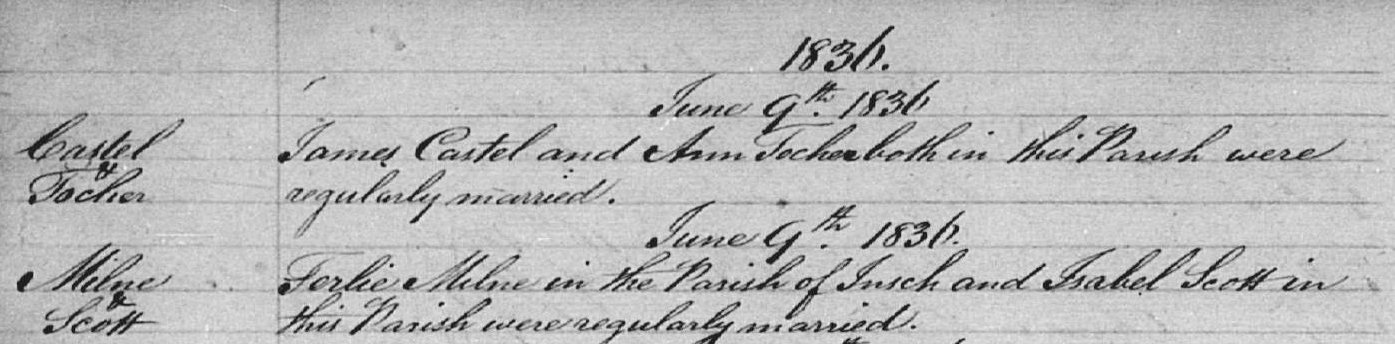 1836.
June 9th. 1836
Castel James Castel and Ann Tocher both in this Parish were
&
Tocher regularly married.
June 9th. 1836.
Milne Milne in the Parish of Insch and Isabel Scott in
&
Scott this Parish were regularly married.